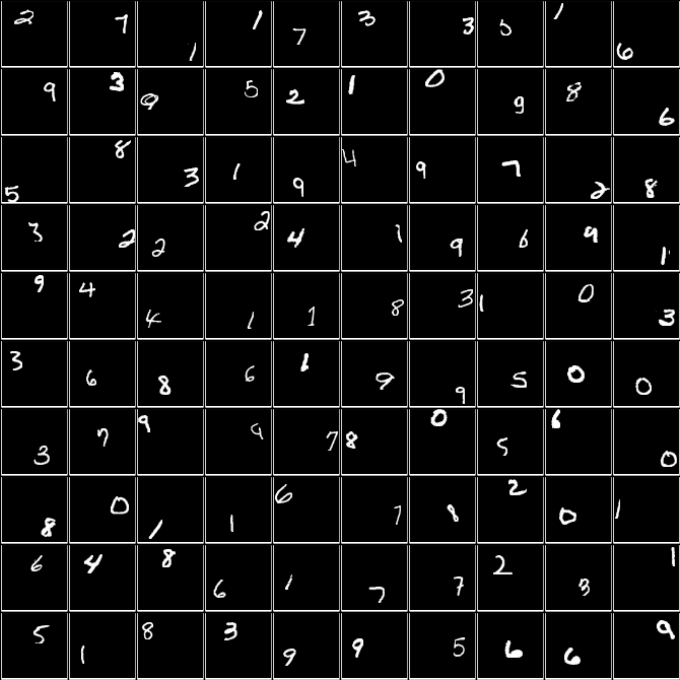 2 7 1 1 7 3 3 5 1 6
9 3 9 5 2 1 0 9 8 6
5 8 3 1 9 4 9 7 2 8
3 2 2 2 4 1 9 6 9 1
9 4 4 1 1 8 3 1 0 3
3 6 8 6 1 9 9 5 0 0
3 7 9 9 7 8 0 5 6 0
8 0 1 1 6 7 8 2 0 1
6 4 8 6 1 7 7 2 3 1
5 1 8 3 9 9 5 6 6 9